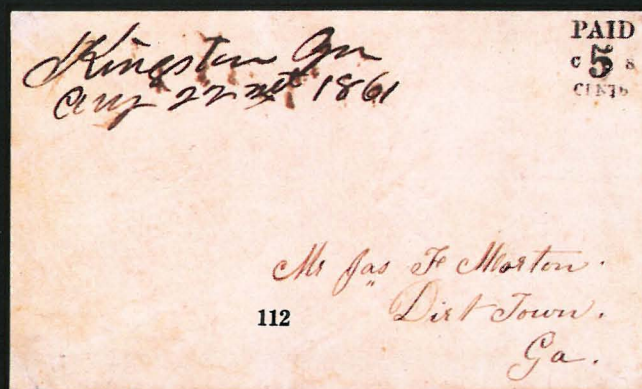 Kingston Ga
Aug 22nd 1861
PAID
C 5 S
CENTS
Mr Jas F Morton.
Dirt Town.
Ga.
112